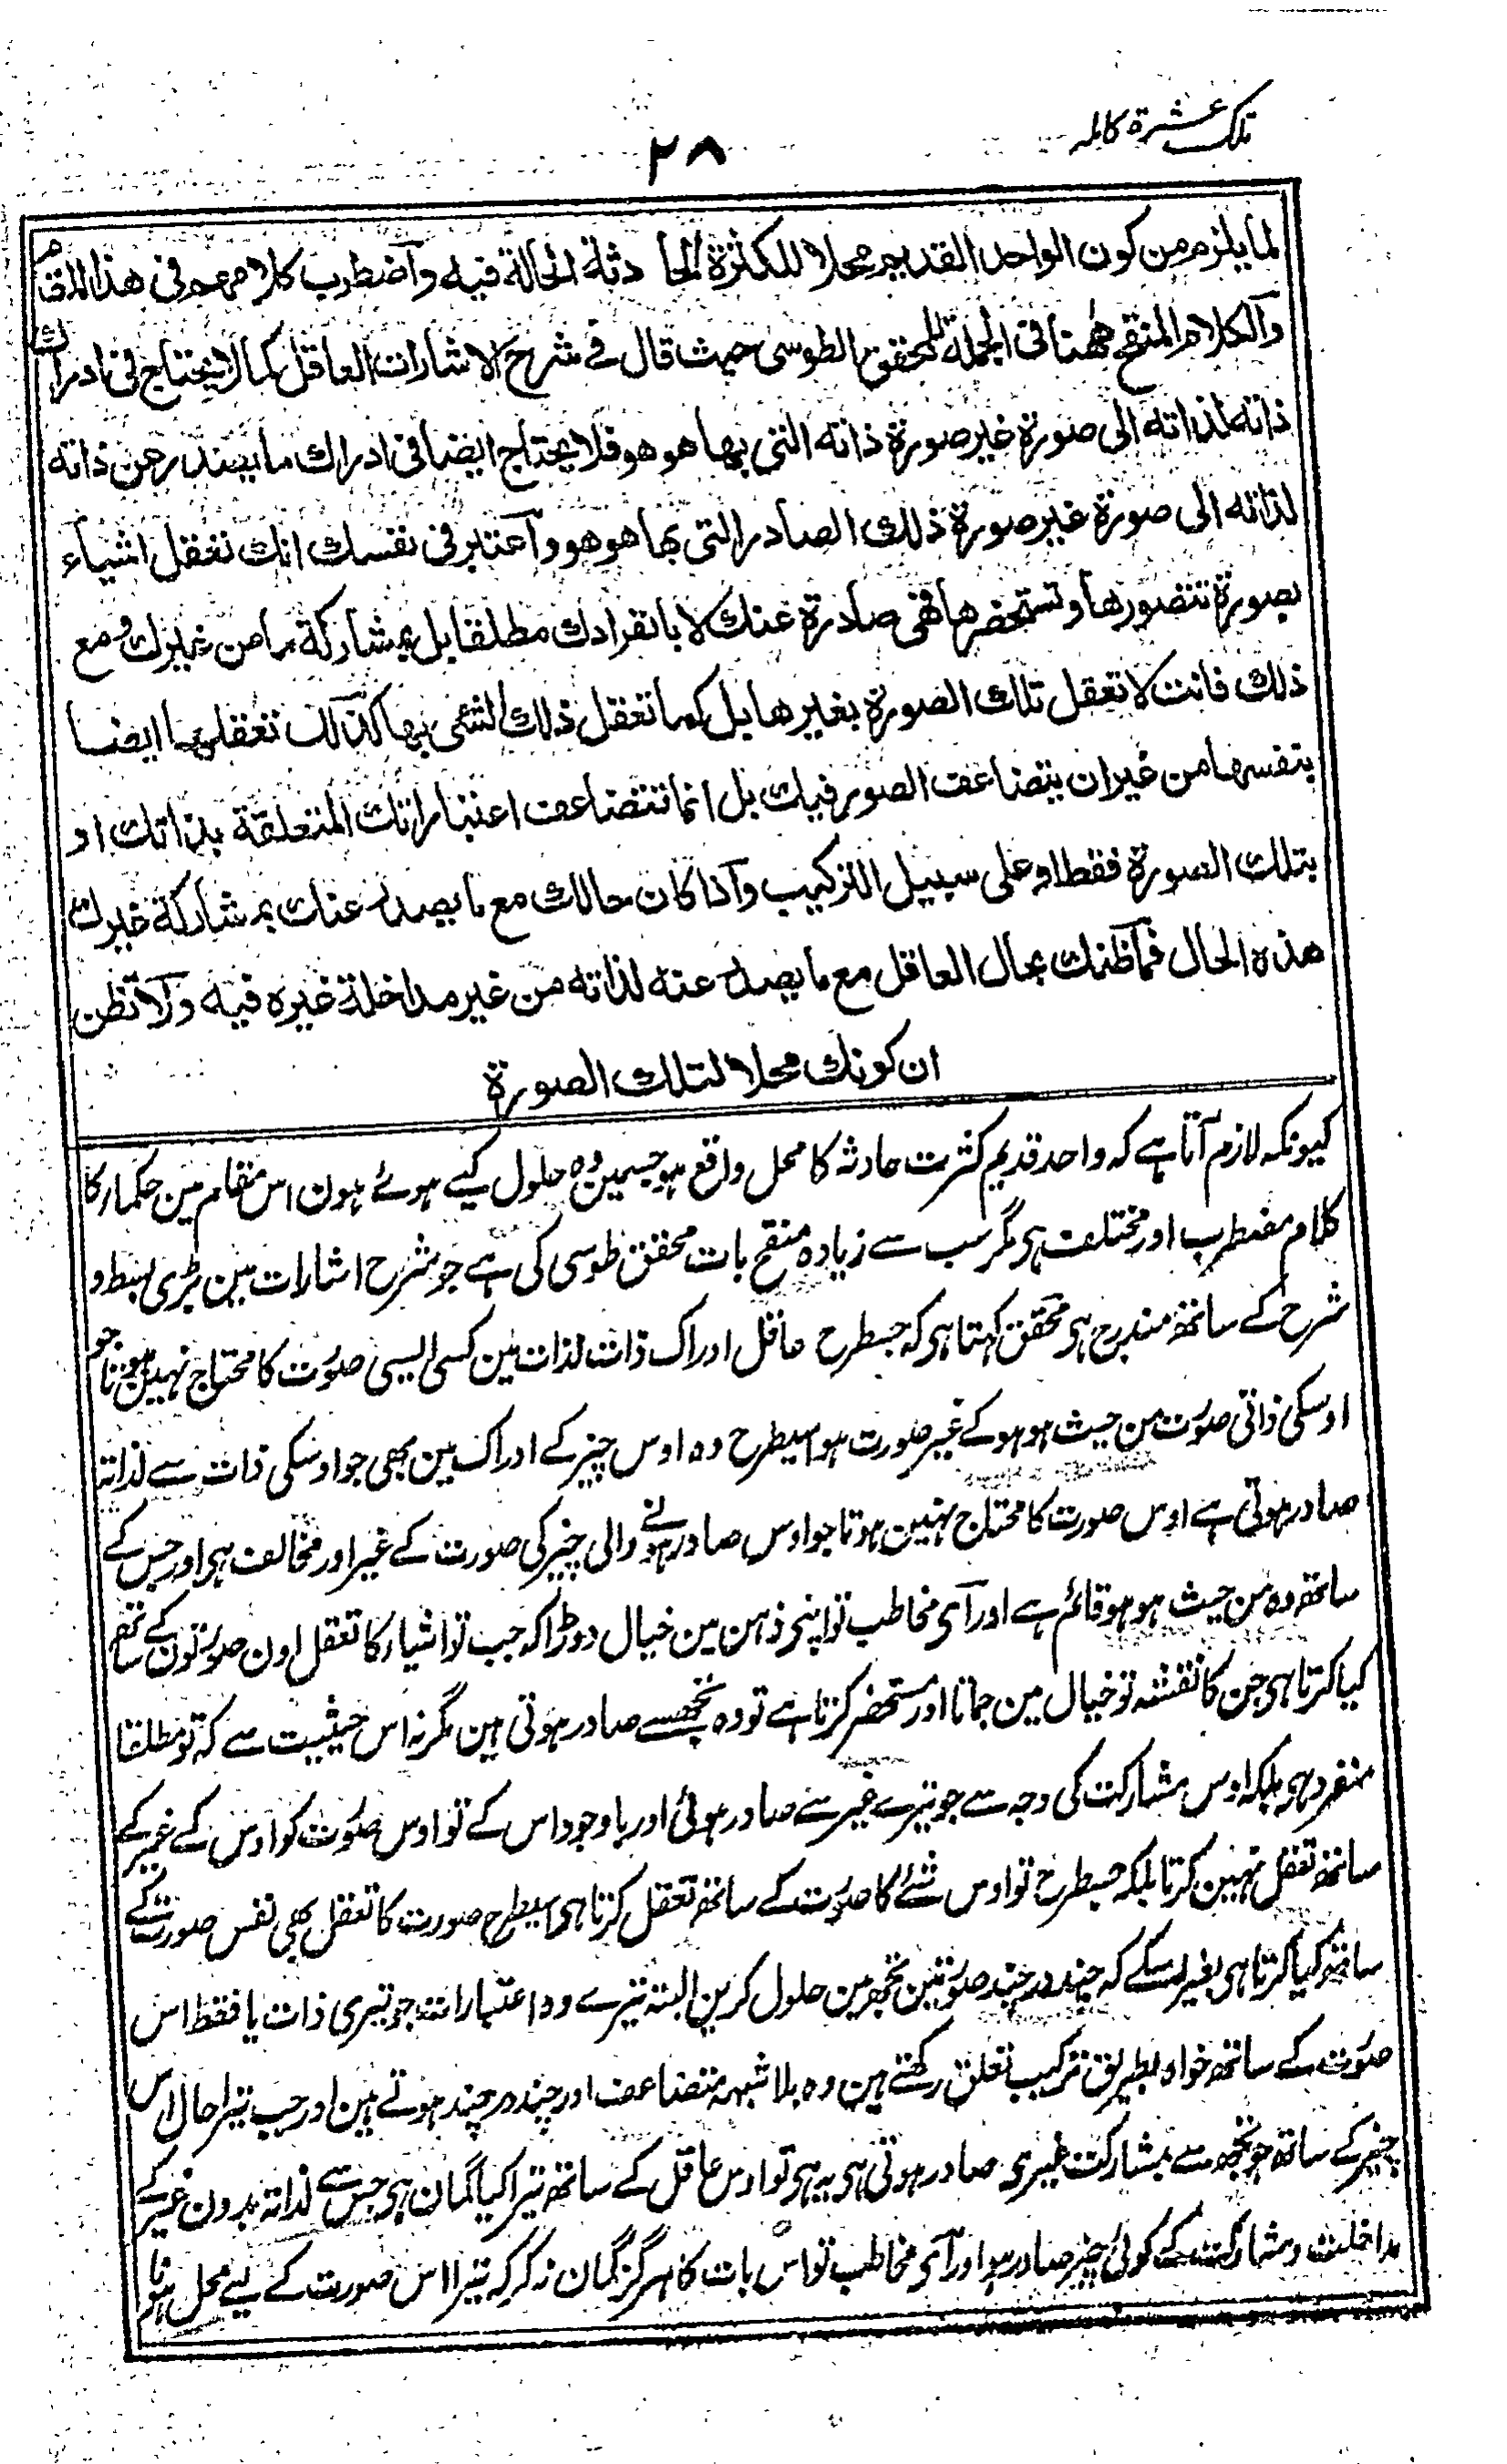 تلک عشرۃ کاملہ
۲۸
لما یلزم من کون الواحد القدیم محلا للکثرۃ الحا دثۃ الحالۃ فیہ وآضطرب کلامھم فی ھذا المقام
وآلکلام المنقح ھٰھنا فی الجملۃ للمحقق الطوسی حیث قال فی شرح الاشارات العاقل کما لا یحتاج فی ادراک
ذاتہ لذاتہ الی صورۃ غیر صورۃ ذاتہ التی بھا ھو ھو فلا یحتاج ایضا فی ادراک ما یصدر عن ذاتہ
لذاتہ الی صورۃ غیر صورۃ ذلک الصادر التی بھا ھو ھو وآعتبر فی نفسک انک تعقل اشیاء
بصورۃ تتصورھا و تستحضرھا فھی صادرۃ عنک لا بانفرادک مطلقا بل بمشارکۃ ما من غیرک و مع
ذلک فانت لا تعقل تلک الصورۃ بغیرھا بل کما تعقل ذلک الشئی بھا کذلک تعقلھا ایضا
بنفسھا من غیر ان یتضاعف الصور فیک بل انما تتضاعف اعتباراتک المتعلقۃ بذاتک او
بتلک الصورۃ فقط او علی سبیل الترکیب وآذا کان حالک مع ما یصدر عنک بمشارکۃ غیرک
ھذہ الحال فما ظنک بحال العاقل مع ما یصدر عنہ لذاتہ من غیر مداخلۃ غیرہ فیہ ولا تظن
ان کونک محلا لتلک الصورۃ
کیونکہ لازم آتا ہے کہ واحد قدیم کثرت حادثہ کا محل واقع ہو جسمین وہ حلول کیے ہوئے ہون اس مقام مین حکماء کا
کلام مضطرب اور مختلف ہی مگر سب سے زیادہ منقح بات محقق طوسی کی ہے جو شرح اشارات مین بڑی بسط و
شرح کے ساتھ مندرج ہی محقق کہتا ہی کہ جسطرح عاقل ادراک ذات لذات مین کسی ایسی صورت کا محتاج نہین ہوتا جو
اوسکی ذاتی صورت من حیث ہو ہو کے غیر صورت ہو اسیطرح وہ اوس چیز کے ادراک مین بھی جو اوسکی ذات سے لذاتہ
صادر ہوتی ہے اوس صورت کا محتاج نہین ہوتا جو اوس صادر ہونے والی چیز کی صورت کے غیر اور مخالف ہی اور جس کے
ساتھ وہ من حیث ہو ہو قائم ہے اور آی مخاطب تو اپنی ذہن مین خیال دوڑا کہ جب تو اشیاء کا تعقل اون صورتون کے ساتھ
کیا کرتا ہی جن کا نقشہ تو خیال مین جماتا اور مستحضر کرتا ہے تو وہ تجھسے صادر ہوتی ہین مگر نہ اس حیثیت سے کہ تو مطلقا
منفرد ہی بلکہ اوس مشارکت کی وجہ سے جو تیرے غیر سے صادر ہوئی اور باوجود اس کے تو اوس صورت کو اوس کے غیر کے
ساتھ تعقل نہین کرتا بلکہ جسطرح تو اوس شئے کا صورت کے ساتھ تعقل کرتا ہی اسیطرح صورت کا تعقل بھی نفس صورت کے
ساتھ کیا کرتا ہی بغیر اسکے کہ چند در چند صورتین تجھ مین حلول کرین البتہ تیرے وہ اعتبارات جو تیری ذات یا فقط اس
صورت کے ساتھ خواہ بطریق ترکیب تعلق رکھتے ہین وہ بلا شبہہ متضاعف اور چند در چند ہوتے ہین اور جب تیرا حال اس
چیز کے ساتھ جو تجھ سے بمشارکت غیری صادر ہوتی ہی یہ ہی تو اوس عاقل کے ساتھ تیرا کیا گمان ہی جس سے لذاتہ بدون غیر کے
مداخلت و مشارکت کے کوئی چیز صادر ہو اور آی مخاطب تو اس بات کا ہرگز گمان نہ کر کہ تیرا اس صورت کے لیے محل ہونا